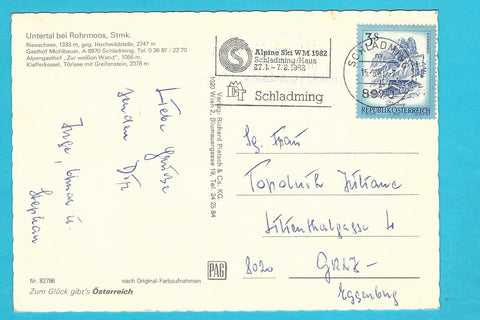 Untertal bei Rohrmoos, Stmk.
Riesachsee, 1333 m, geg. Hochwildstelle, 2747 m
Gasthof Michlbauer, A 8970 Schladming, Tel. 0 36 87 / 22 70
Alpengasthof „Zur weißen Wand", 1056 m,
Klafferkessel, Törlsee mit Greifenstein, 2378 m
Alpine Ski WM 1982
Schladming/Haus
27.1. - 7.2.1982
Schladming
3s
SCHLADMING
897
REPUBLIK ÖSTERREICH
Liebe Grüße
senden Dir
Inge, u.
Stephan
Verlag: Richard Pietsch & Co. KG.,
1020 Wien 2, Blumauergasse 19, Tel. 24 25 84
Sg. Frau
Topolnik Juliane
Lilienthalgasse 4
8020 GRAZ-
Eggenberg
PAG
Nr. 82786
nach Original-Farbaufnahmen
Zum Glück gibt's Österreich